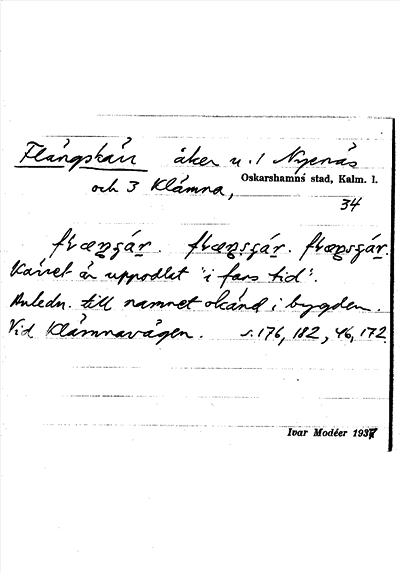 Flängskärr åker u. 1 Nyenäs
Oskarshamns stad, Kalm. l.
och 3 Klämna,
34
Kärret är uppodlat "i fars tid".
Anledn. till namnet okänd i bygden.
Vid Klämnavägen. s. 176, 182, 46, 172.
Ivar Modéer 1937